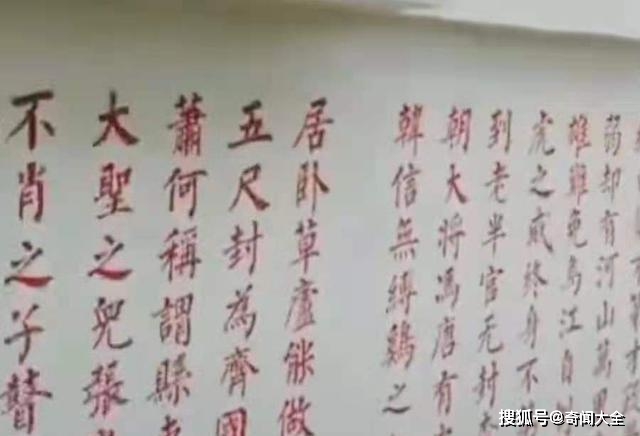 弱却有河山萬里
雄難免烏江自
虎之威終身不
到老半官无封
朝大將馮唐有
韓信無縛鷄之
居卧草廬能做
五尺封為齊國
蕭何稱謂縣
大聖之兒張
不肖之子瞽
搜狐号@奇闻大全